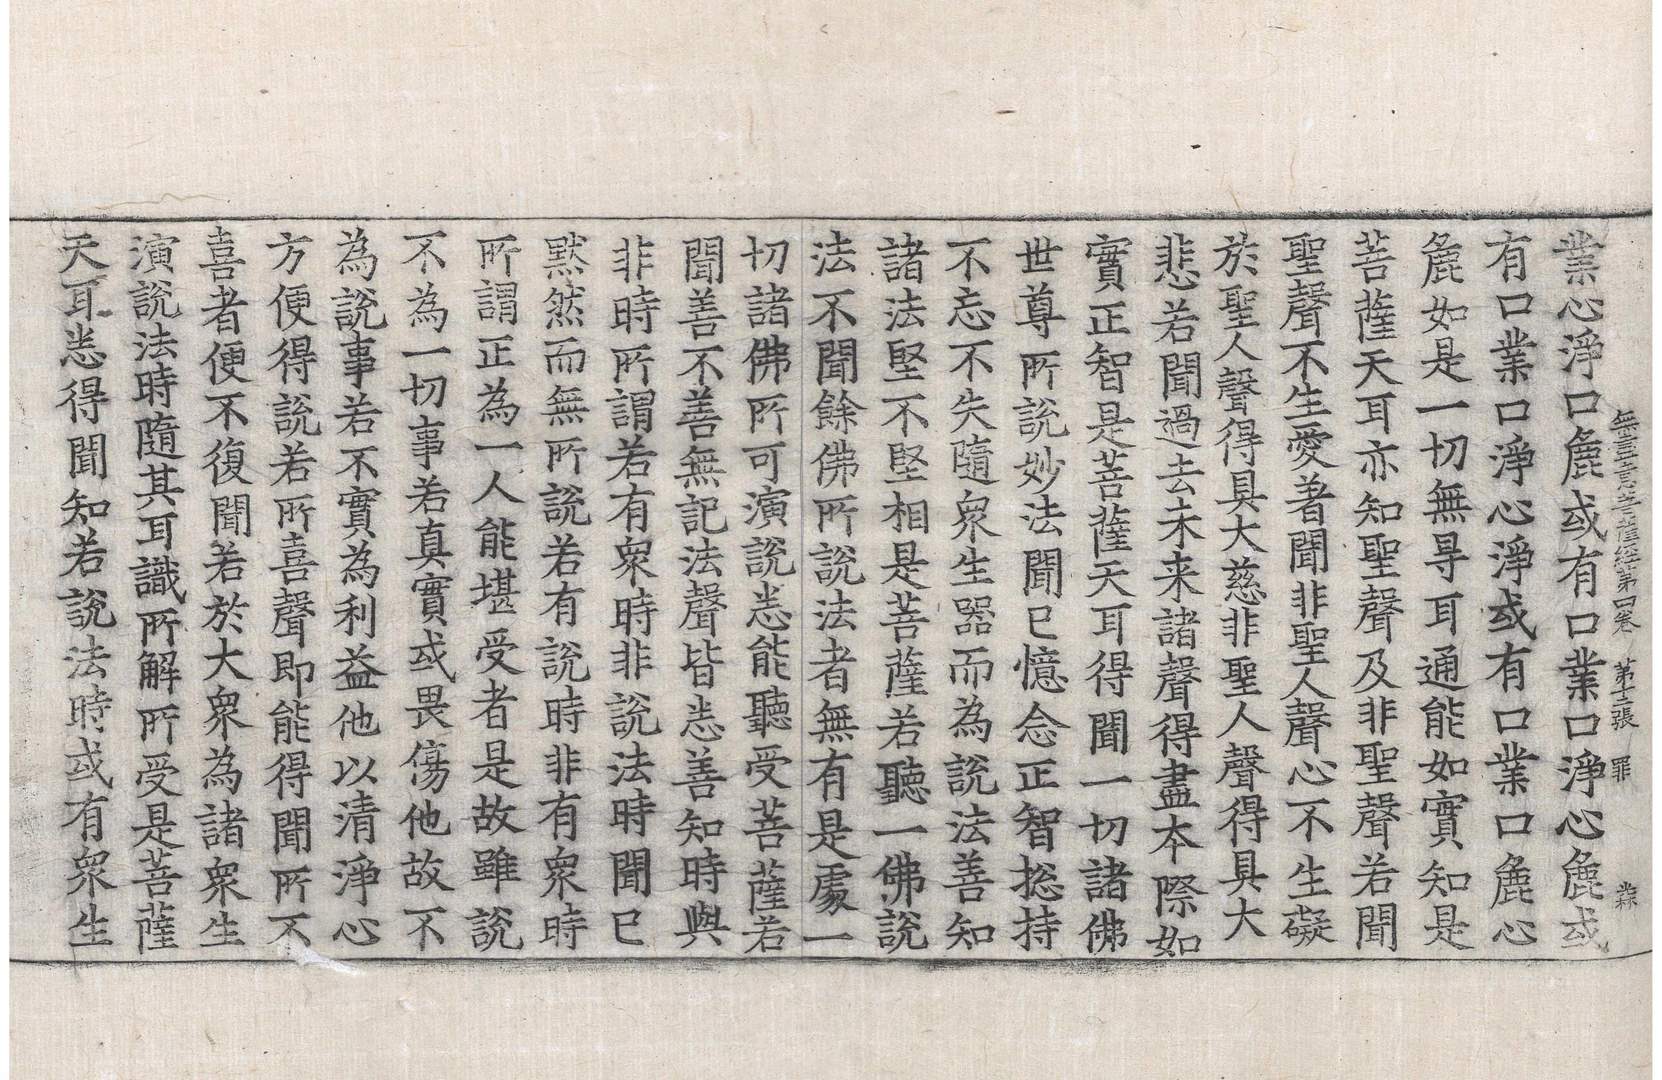 無盡意菩薩經第四卷 第十二張 罪
業心淨口麁或有口業口淨心麁或
有口業口淨心淨或有口業口麁心
麁如是一切無㝵耳通能如實知是
菩薩天耳亦知聖聲及非聖聲若聞
聖聲不生愛著聞非聖人聲心不生礙
於聖人聲得具大慈非聖人聲得具大
悲若聞過去未来諸聲得盡本際如
實正智是菩薩天耳得聞一切諸佛
世尊所說妙法聞已憶念正智捴持
不忘不失隨衆生器而為說法善知
諸法堅不堅相是菩薩若聽一佛說
法不聞餘佛所說法者無有是處一
切諸佛所可演說悉能聽受菩薩若
聞善不善無記法聲皆悉善知時與
非時所謂若有衆時非說法時聞已
默然而無所說若有說時非有衆時
所謂正為一人能堪受者是故雖說
不為一切事若真實或畏傷他故不
為說事若不實為利益他以清淨心
方便得說若所喜聲即能得聞所不
喜者便不復聞若於大衆為諸衆生
演說法時隨其耳識所解所受是菩薩
天耳悉得聞知若說法時或有衆生